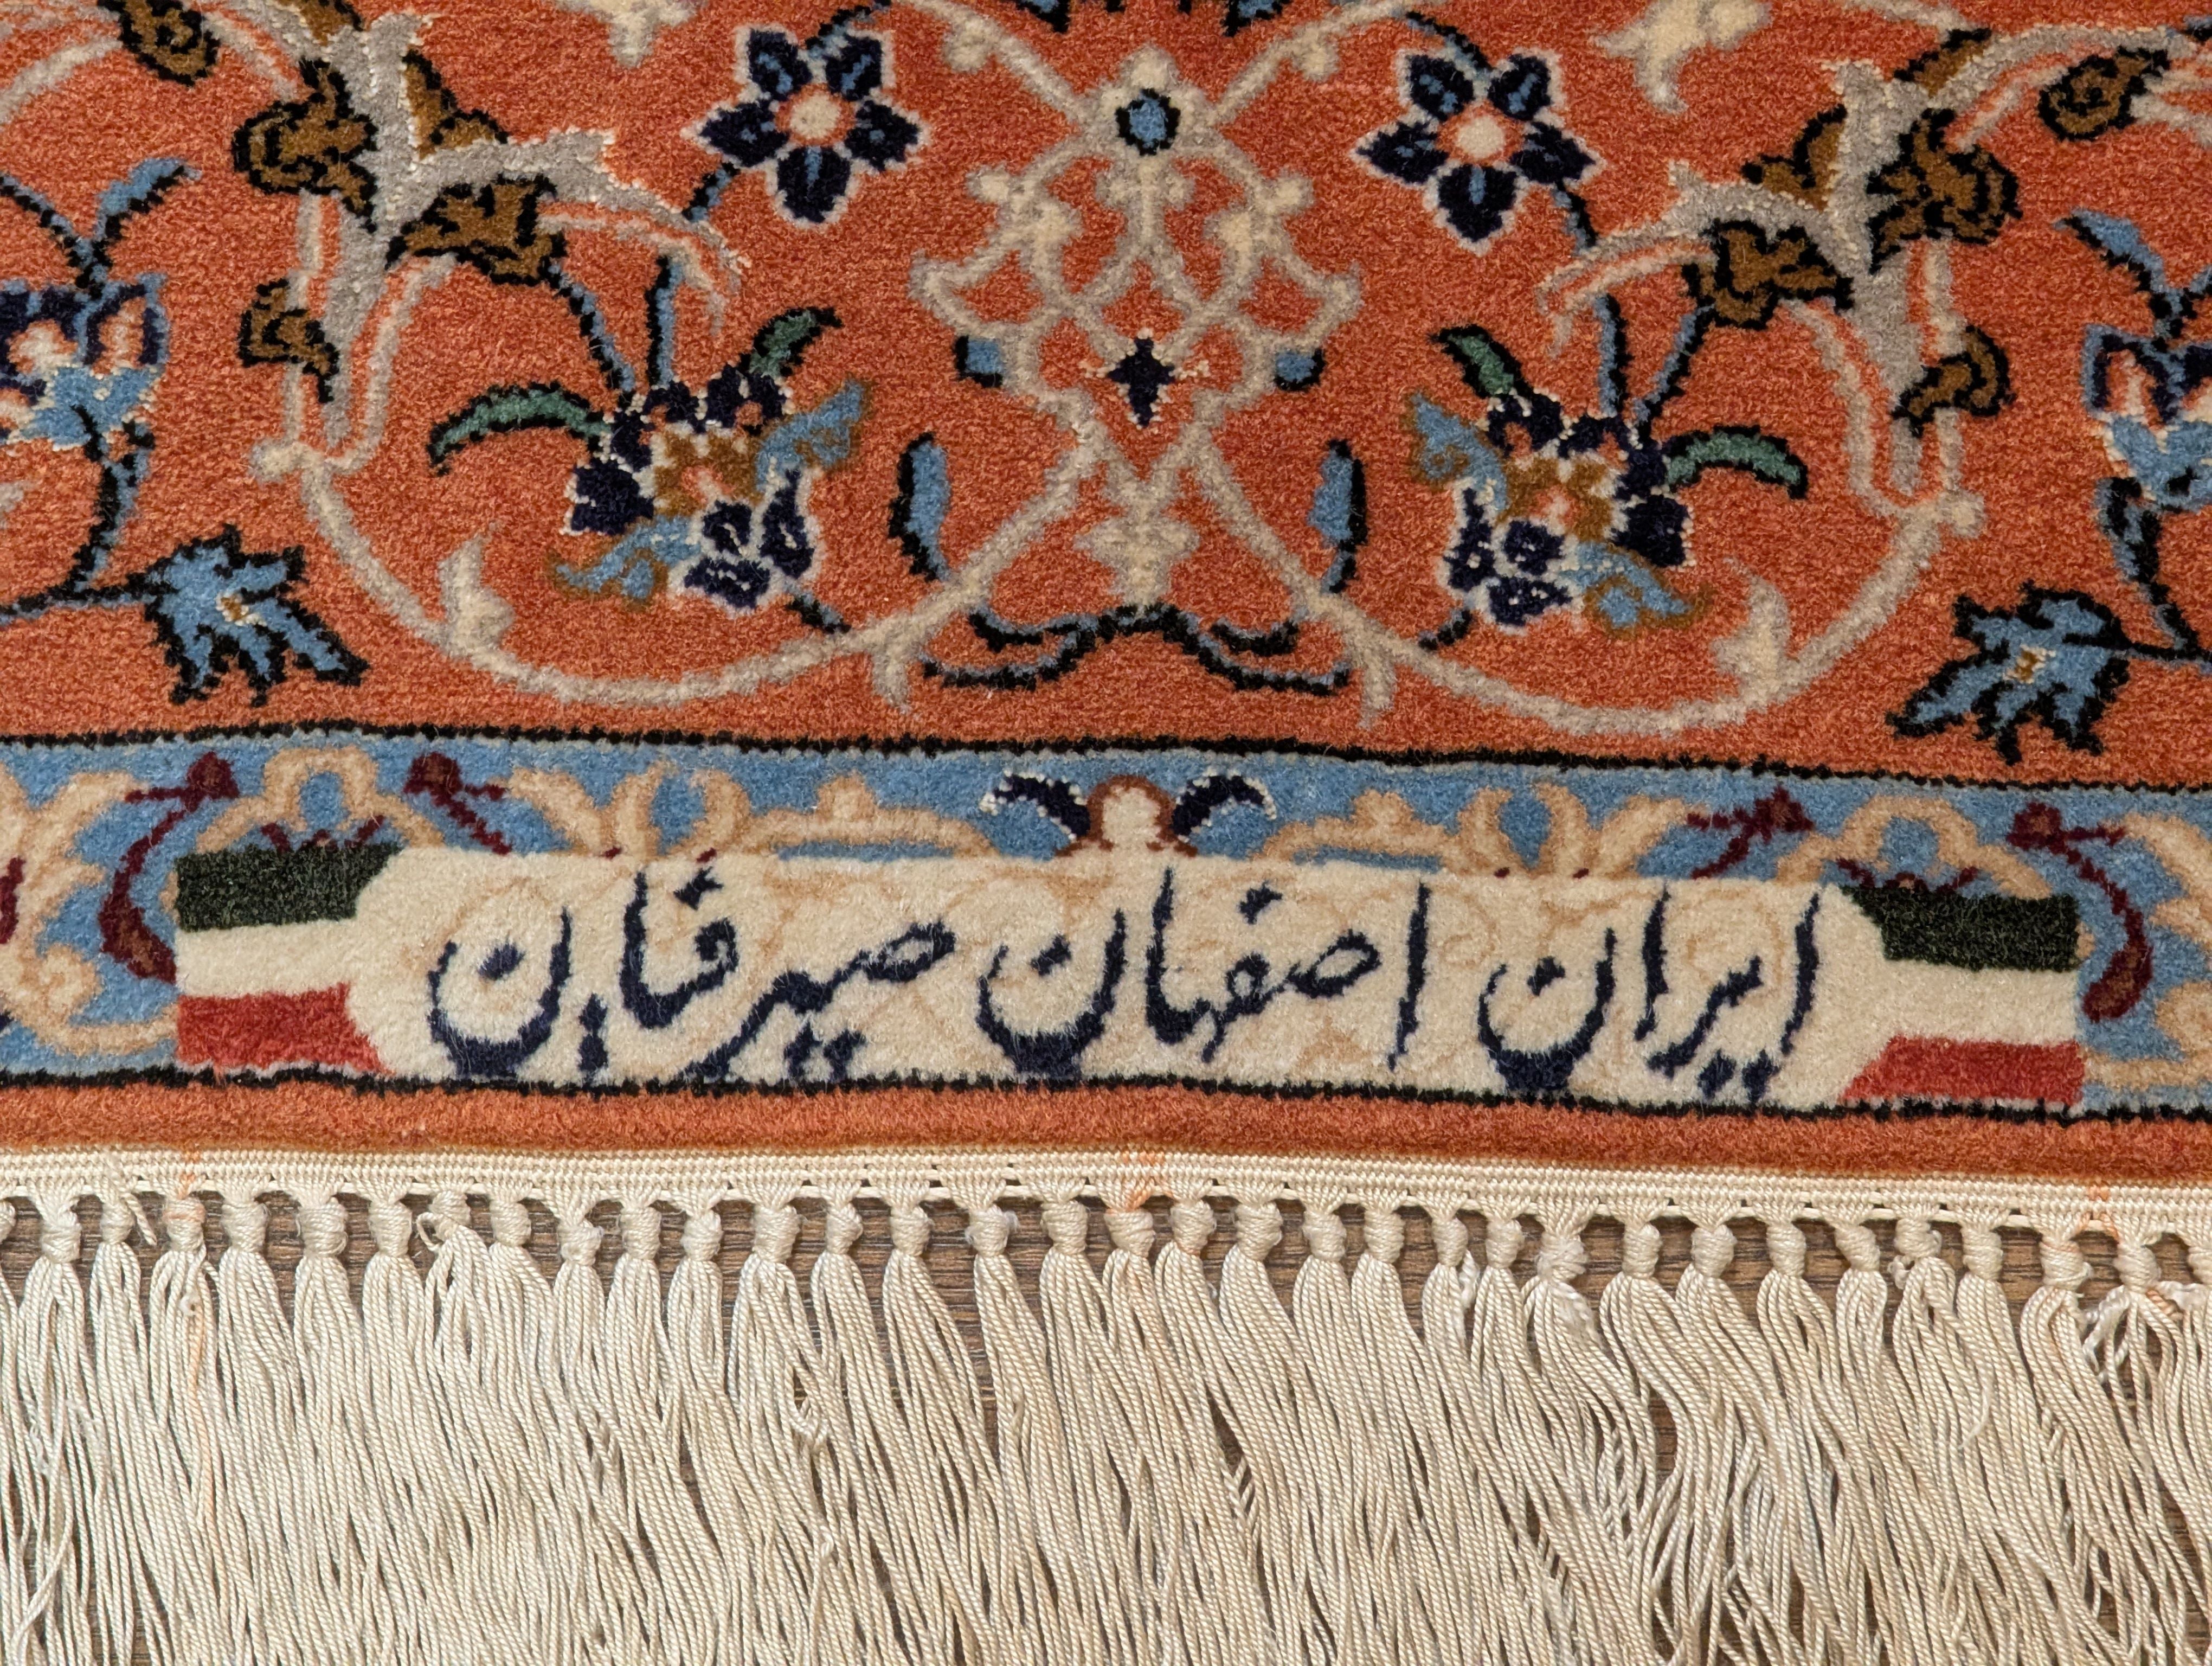 ایران اصفهان صیرفیان